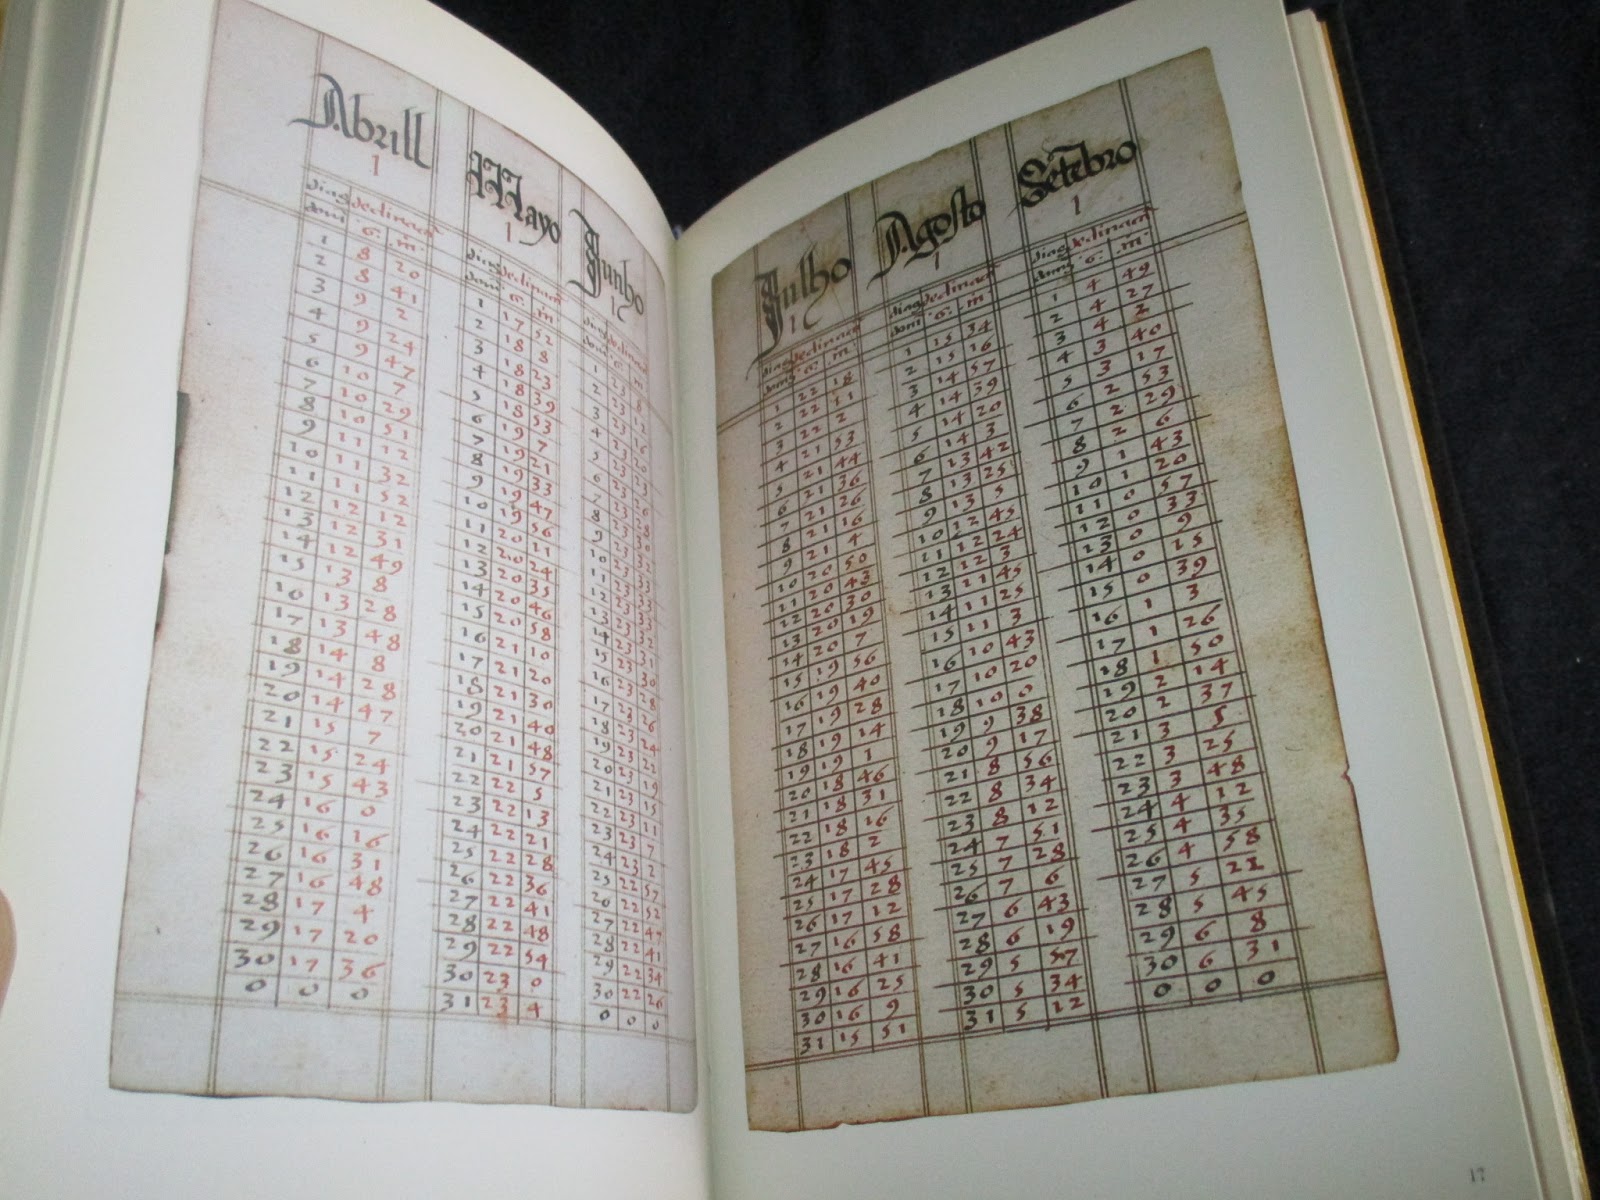 Abrill
1
dias declinacā
dom g. m.
1 8 20
2 8 41
3 9 2
4 9 24
5 9 47
6 10 7
7 10 29
8 10 51
9 11 12
10 11 32
11 11 52
12 12 12
13 12 31
14 12 49
15 13 8
16 13 28
17 13 48
18 14 8
19 14 28
20 14 47
21 15 7
22 15 24
23 15 43
24 16 0
25 16 16
26 16 31
27 16 48
28 17 4
29 17 20
30 17 36
0 0 0
Mayo
1
dias declinacā
dom g. m
1 17 52
2 18 8
3 18 23
4 18 39
5 18 53
6 19 7
7 19 21
8 19 33
9 19 47
10 19 56
11 20 11
12 20 24
13 20 35
14 20 46
15 20 58
16 21 10
17 21 20
18 21 30
19 21 40
20 21 48
21 21 57
22 22 5
23 22 13
24 22 21
25 22 28
26 22 36
27 22 41
28 22 48
29 22 54
30 23 0
31 23 4
Junho
1
dias declinacā
dom g. m
1 23 8
2 23 12
3 23 16
4 23 20
5 23 23
6 23 26
7 23 28
8 23 30
9 23
10 23 33
11 23 33
12 23 33
13 23 32
14 23 31
15 23 30
16 23 28
17 23 26
18 23 24
19 23 22
20 23 19
21 23 15
22 23 11
23 23 7
24 23 2
25 22 57
26 22 52
27 22 47
28 22 41
29 22 34
30 22 26
0 0 0
Julho
1
dias declinacā
dom g. m.
1 22 18
2 22 11
3 22 2
4 21 53
5 21 44
6 21 36
7 21 26
8 21 16
9 21 4
10 20 50
11 20 43
12 20 30
13 20 19
14 20 7
15 19 56
16 19 40
17 19 28
18 19 14
19 19 1
20 18 46
21 18 31
22 18 16
23 18 2
24 17 45
25 17 28
26 17 12
27 16 58
28 16 41
29 16 25
30 16 9
31 15 51
Agosto
1
dias declinacā
dom g. m
1 15 34
2 15 16
3 14 57
4 14 39
5 14 20
6 14 3
7 13 42
8 13 25
9 13 5
10 12 45
11 12 24
12 12 3
13 11 45
14 11 25
15 11 3
16 10 43
17 10 20
18 10 0
19 9 38
20 9 17
21 8 56
22 8 34
23 8 12
24 7 51
25 7 28
26 7 6
27 6 43
28 6 19
29 5 57
30 5 34
31 5 12
Setēbro
1
dias declinacā
dom g. m
1 4 49
2 4 27
3 4 2
4 3 40
5 3 17
6 2 53
7 2 29
8 2 6
9 1 43
10 1 20
11 0 57
12 0 33
13 0 9
14 0 15
15 0 39
16 1 3
17 1 26
18 1 50
19 2 14
20 2 37
21 3 5
22 3 25
23 3 48
24 4 12
25 4 35
26 4 58
27 5 22
28 5 45
29 6 8
30 6 31
0 0 0
17